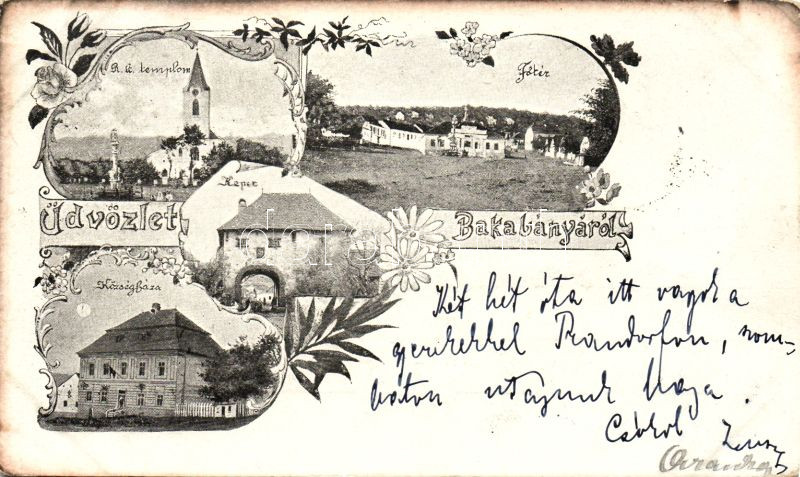 R. k. templom
Főtér
Kapu
Üdvözlet
Bakabányáról
Községháza
Két hét óta itt vagyok a
gyerekekkel Prandorfon, szom-
baton utazunk haza.
Csókol